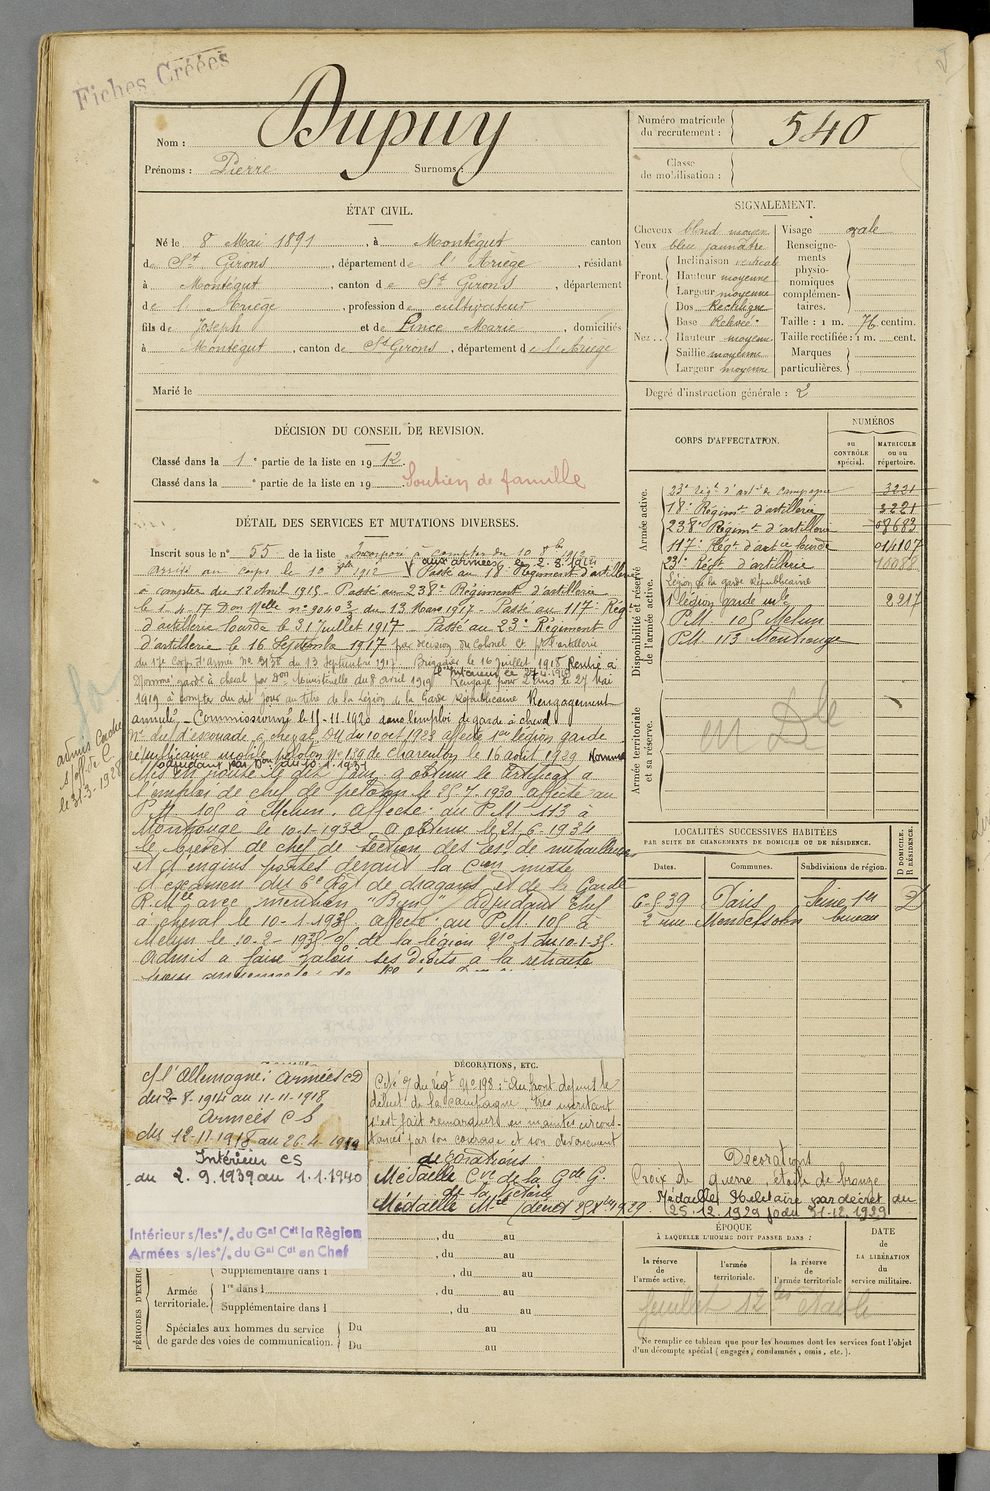 Fiches Créées
Nom : Dupuy
Prénoms : Pierre Surnoms :
Numéro matricule
du recrutement : 540
Classe
de mobilisation :
ÉTAT CIVIL.
Né le 8 Mai 1891, à Montégut canton
de St. Girons, département de l'Ariège, résidant
à Montégut, canton de St Girons, département
de l'Ariège, profession de cultivateur
fils de Joseph et de Pince Marie, domiciliés
à Montégut, canton de St Girons, département de l'Ariège
Marié le
SIGNALEMENT.
Cheveux blond moyen
Yeux bleu jaunâtre
Front.
Inclinaison verticale
Hauteur moyenne
Largeur moyenne
Nez...
Dos Rectiligne
Base Relevée
Hauteur moyenne
Saillie moyenne
Largeur moyenne
Visage ovale
Renseigne-
ments
physio-
nomiques
complémen-
taires.
Taille : 1 m. 76 centim.
Taille rectifiée : 1 m. cent.
Marques
particulières.
Degré d'instruction générale : 2
DÉCISION DU CONSEIL DE REVISION.
Classé dans la 1e partie de la liste en 1912.
Classé dans la e partie de la liste en 19 Soutien de famille
DÉTAIL DES SERVICES ET MUTATIONS DIVERSES.
Inscrit sous le n° 55 de la liste Incorporé à compter du 10 8bre 1912
aux armées le 2.8.1914
arrivé au corps le 10 1912 Passé au 18e Régiment d'artillerie
à compter du 12 Avril 1915 - Passé au 238e Régiment d'artillerie
le 1-4-17 Don Mlle n° 9040 3/3 du 13 Mars 1917 - Passé au 117e Rég
d'artillerie lourde le 31 Juillet 1917 - Passé au 23e Régiment
d'artillerie le 16 Septembre 1917 par décision du Colonel Ct l'artillerie
du 17e Corps d'armée No 3138 du 13 Septembre 1917. Brigadier le 16 juillet 1918 Rentré à
l'intérieur le 27-4-1919
Nommé garde à cheval par Don Ministérielle du 8 avril 1919 Rengagé pour 2 ans le 27 Mai
1919 à compter du dit jour au titre de la Légion de la Garde Républicaine Rengagement
annulé - Commissionné le 15-11-1920 dans l'emploi de garde à cheval
affecté 1ère légion garde
républicaine mobile peloton No 159 de Charenton le 16 août 1929 Nommé
Mis en route le dit jour, a obtenu le certificat à
l'emploi de chef de peloton le 25-7-1930 affecté au
P.M. 105 à Melun. Affecté au P.M. 113 à
Montrouge le 10-1-1932 a obtenu le 21-6-1934
le brevet de chef de section des Es. de mitrailleuses
et d'engins portés devant la Cion mixte
d'examen du 6e Rgt de dragons et de la Garde
R. Mle avec mention "Bien" Adjudant Chef
à cheval le 10-1-1935 affecté au P.M. 105 à
Melun le 10-2-1935 de la légion No 1 du 10-1-35.
Admis à faire valoir ses droits à la retraite
le 31-3-1928
CORPS D'AFFECTATION.
NUMÉROS
au
CONTRÔLE
spécial.
MATRICULE
ou au
répertoire.
Armée active.
23e Régt d'artie de campagne 3221
18e Régimt d'artillerie 3221
238e Régimt d'artillerie 08683
117e Régt d'artie lourde 014107
Disponibilité et réserve
de l'armée active.
23e Régt d'artillerie 10088
Légion de la garde Républicaine
1e légion garde mle 2217
P.M. 105 Melun
P.M. 113 Montrouge
Armée territoriale
et sa réserve.
en Dle
LOCALITÉS SUCCESSIVES HABITÉES
PAR SUITE DE CHANGEMENTS DE DOMICILE OU DE RÉSIDENCE.
Dates. Communes. Subdivisions de région. D DOMICILE. R RÉSIDENCE.
6-5-39 Paris Seine 1er D
2 rue Mendelssohn bureau
c/ l'Allemagne : Armées CD
du 2-8-1914 au 11-11-1918
Armées CS
du 12-11-1918 au 26-4-1919
Intérieur CS
du 2.9.1939 au 1.1.1940
Intérieur s/les °/. du Gal Cdt la Région
Armées s/les °/. du Gal Cdt en Chef
DÉCORATIONS, ETC.
Cité o/ du régt No 198 : Au front depuis le
début de la campagne, très méritant
s'est fait remarquer en maintes circons-
tances par son courage et son dévouement
décorations
Médaille Cve de la Gde G.
de la Victoire
Médaille Mre
Décorations
Croix de guerre, étoile de bronze
Médaille Militaire par décret du
25.12.1929 jo du 31-12.1929
PÉRIODES D'EXERC
, du au
, du au
Supplémentaire dans l , du au
Armée
territoriale.
1re dans l , du au
Supplémentaire dans l , du au
Spéciales aux hommes du service
de garde des voies de communication.
Du au
Du au
ÉPOQUE
À LAQUELLE L'HOMME DOIT PASSER DANS :
la réserve
de l'armée active.
l'armée
territoriale.
la réserve
de l'armée territoriale
DATE
de
LA LIBÉRATION
du
service militaire.
Ne remplir ce tableau que pour les hommes dont les services font l'objet
d'un décompte spécial (engagés, condamnés, omis, etc.).